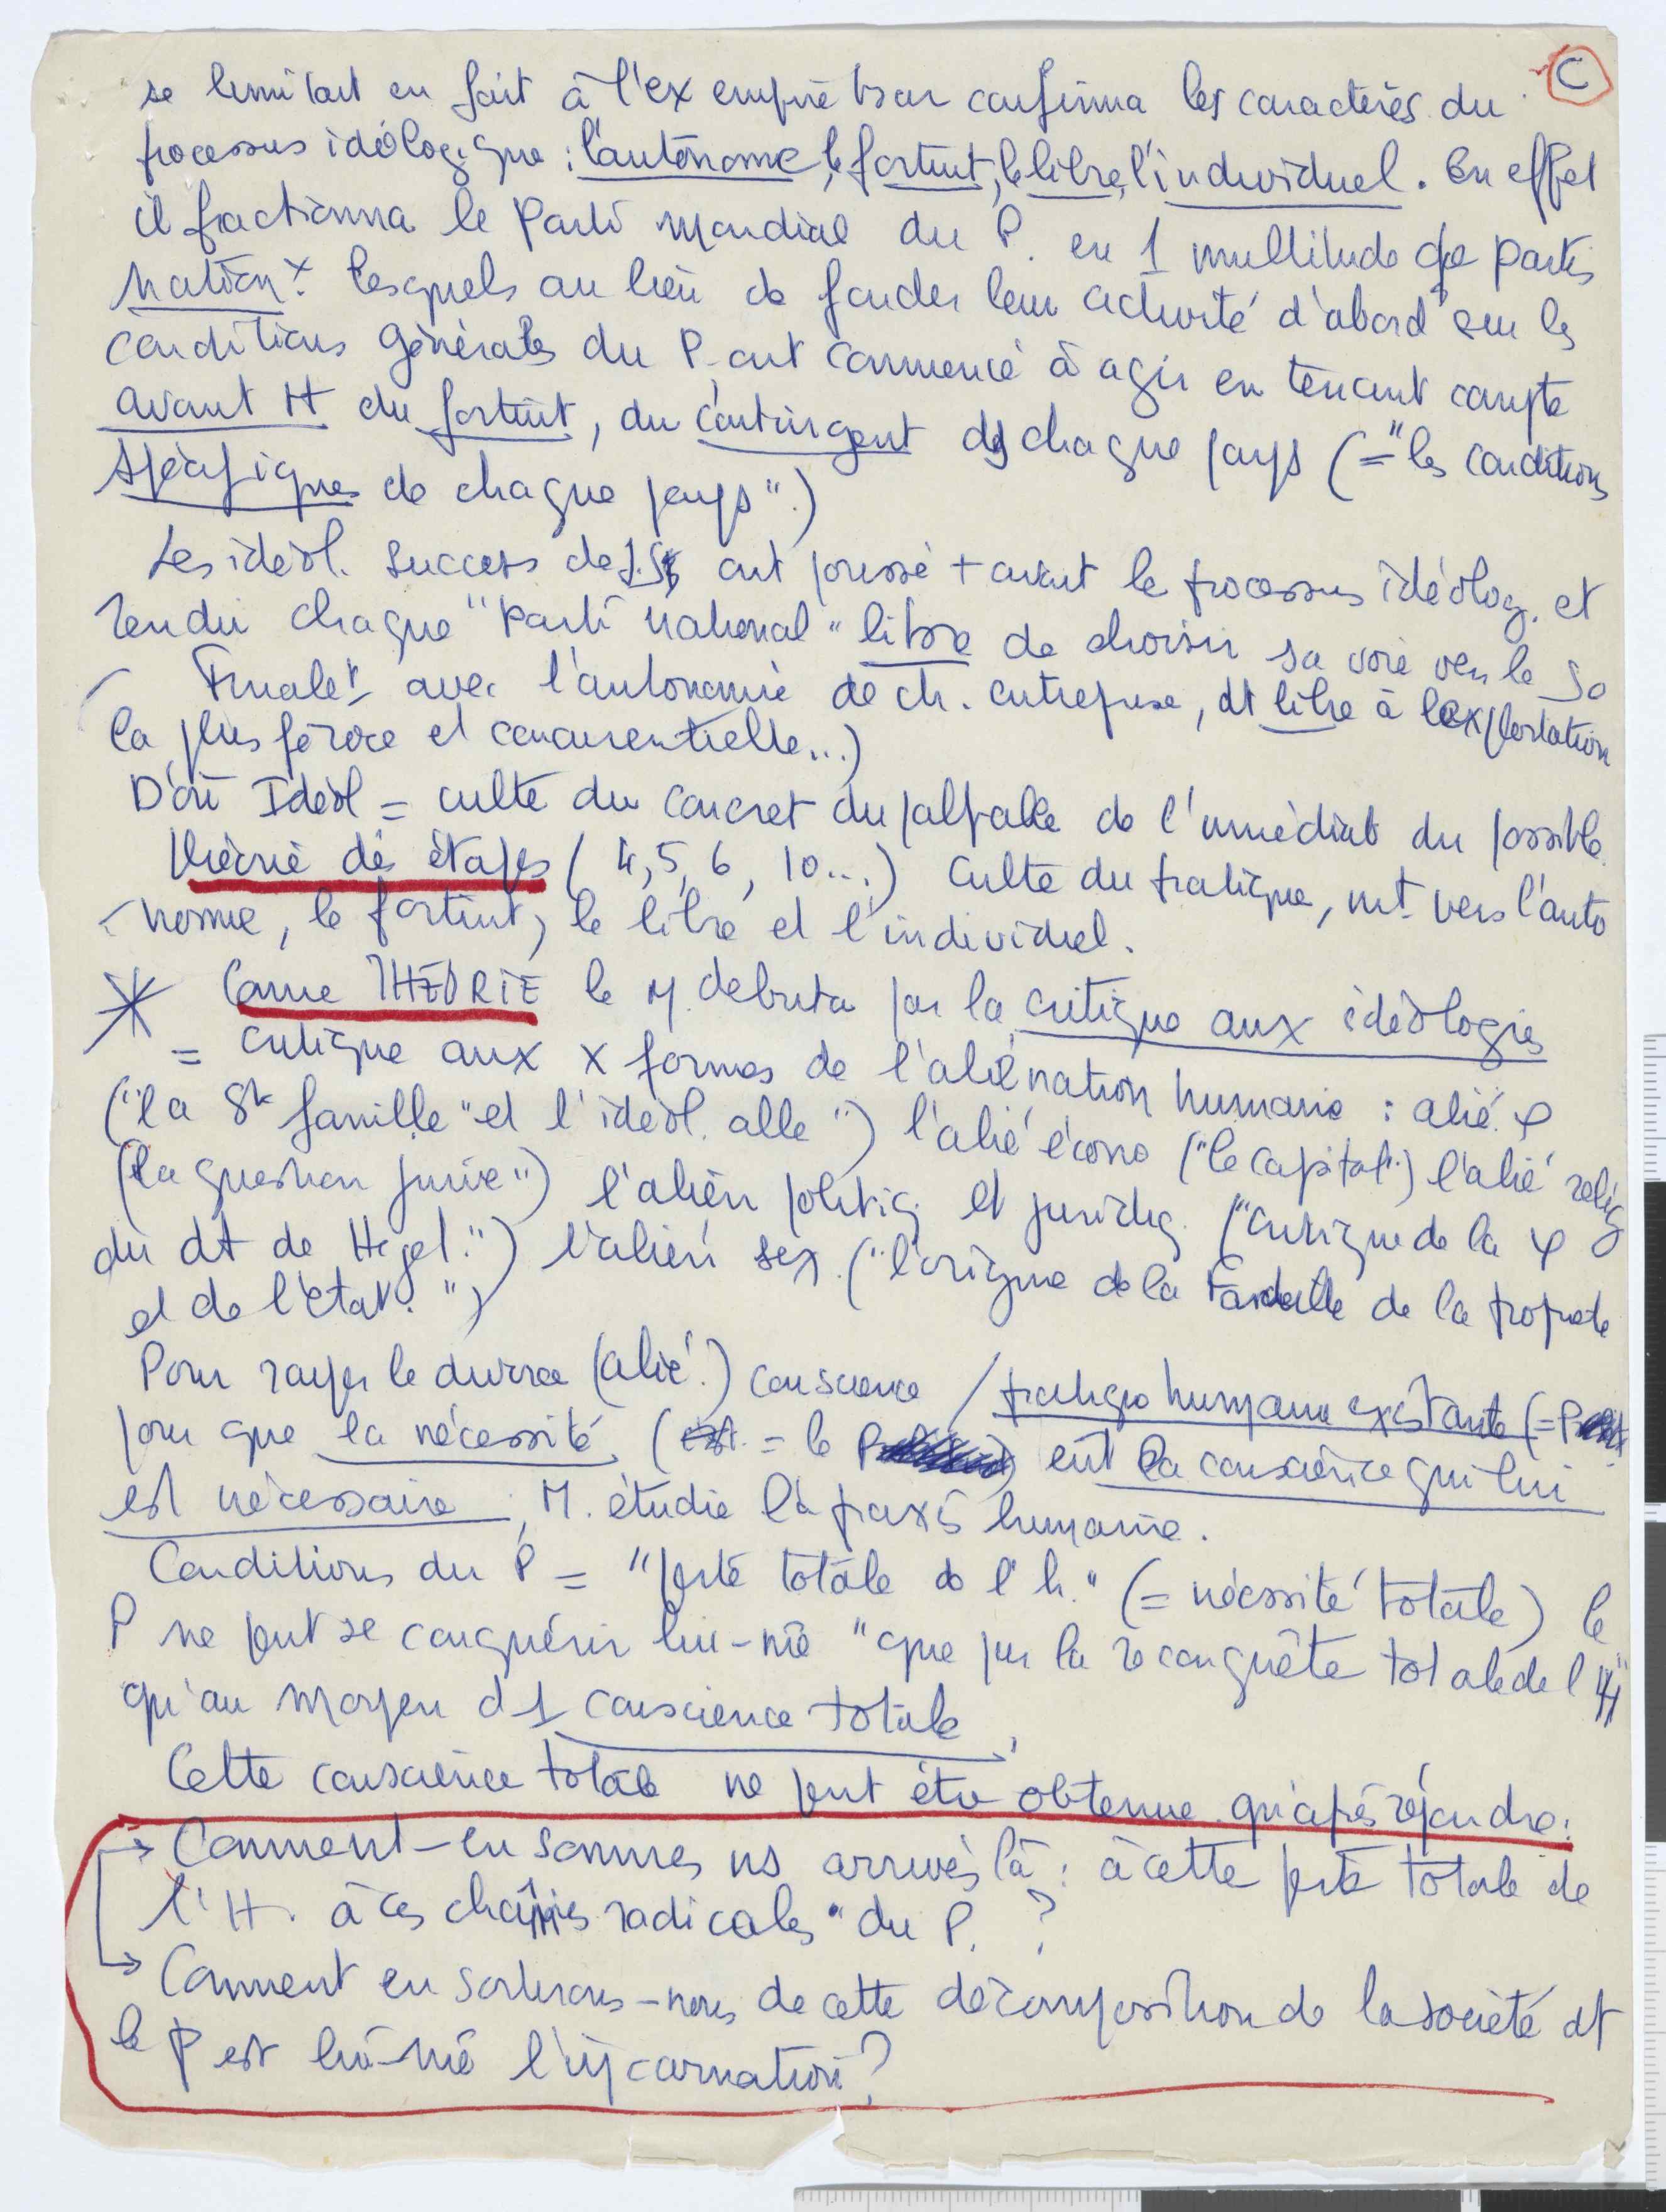 C
se limitant en fait à l'ex empire tsar confirma les caractères du
processus idéologique : l'autonome, le fortuit, le libre, l'individuel. En effet
il fractionna le Parti Mondial du P. en 1 multitude de partis
nationx lesquels au lieu de fonder leur activité d'abord sur les
conditions générales du P. ont commencé à agir en tenant compte
avant tt du fortuit, du contingent de chaque pays (="les conditions
spécifiques de chaque pays".)
Les idéol. success de ont poussé + avant le processus idéolog. et
rendu chaque "Parti national" libre de choisir sa voie vers le So
Finalet avec l'autonomie de ch. entreprise, dt libre à l'exploitation
la plus féroce et concurentielle...)
D'où Idéol = culte du concret du palpable de l'immédiat du possible.
théorie des étapes (4, 5, 6, 10...) culte du pratique, mt vers l'auto
-nome, le fortuit, le libre et l'individuel.
Comme THÉORIE le M. débuta par la critique aux idéologies
= critique aux x formes de l'aliénation humaine : alié. φ
("la Ste famille" et l'idéol. alle") l'alié écono ("le capital") l'alié relig
(la question juive") l'alién politiq et juridiq. ("critique de la φ
du dt de Hegel.") l'alién sex. ("l'origine de la Famille de la propriété
et de l'état.")
Pour rayer le divorce (alié.) conscience / pratique humaine existante (= P
pour que la nécessité ( = le P ) eût la conscience qui lui
est nécessaire, M. étudie la praxis humaine.
Conditions du P = "perte totale de l'h." (= nécessité totale) le
P ne peut se conquérir lui-mê "que par la reconquête totale de l'H"
qu'au moyen d 1 conscience totale.
Cette conscience totale ne peut être obtenue qu'après répondre :
→ Comment-en sommes ns arrivés là : à cette perte totale de
l'H. à ces chaînes radicales" du P. ?
→ Comment en sortirons-nous de cette décomposition de la société dt
le P est lui-mê l'incarnation ?